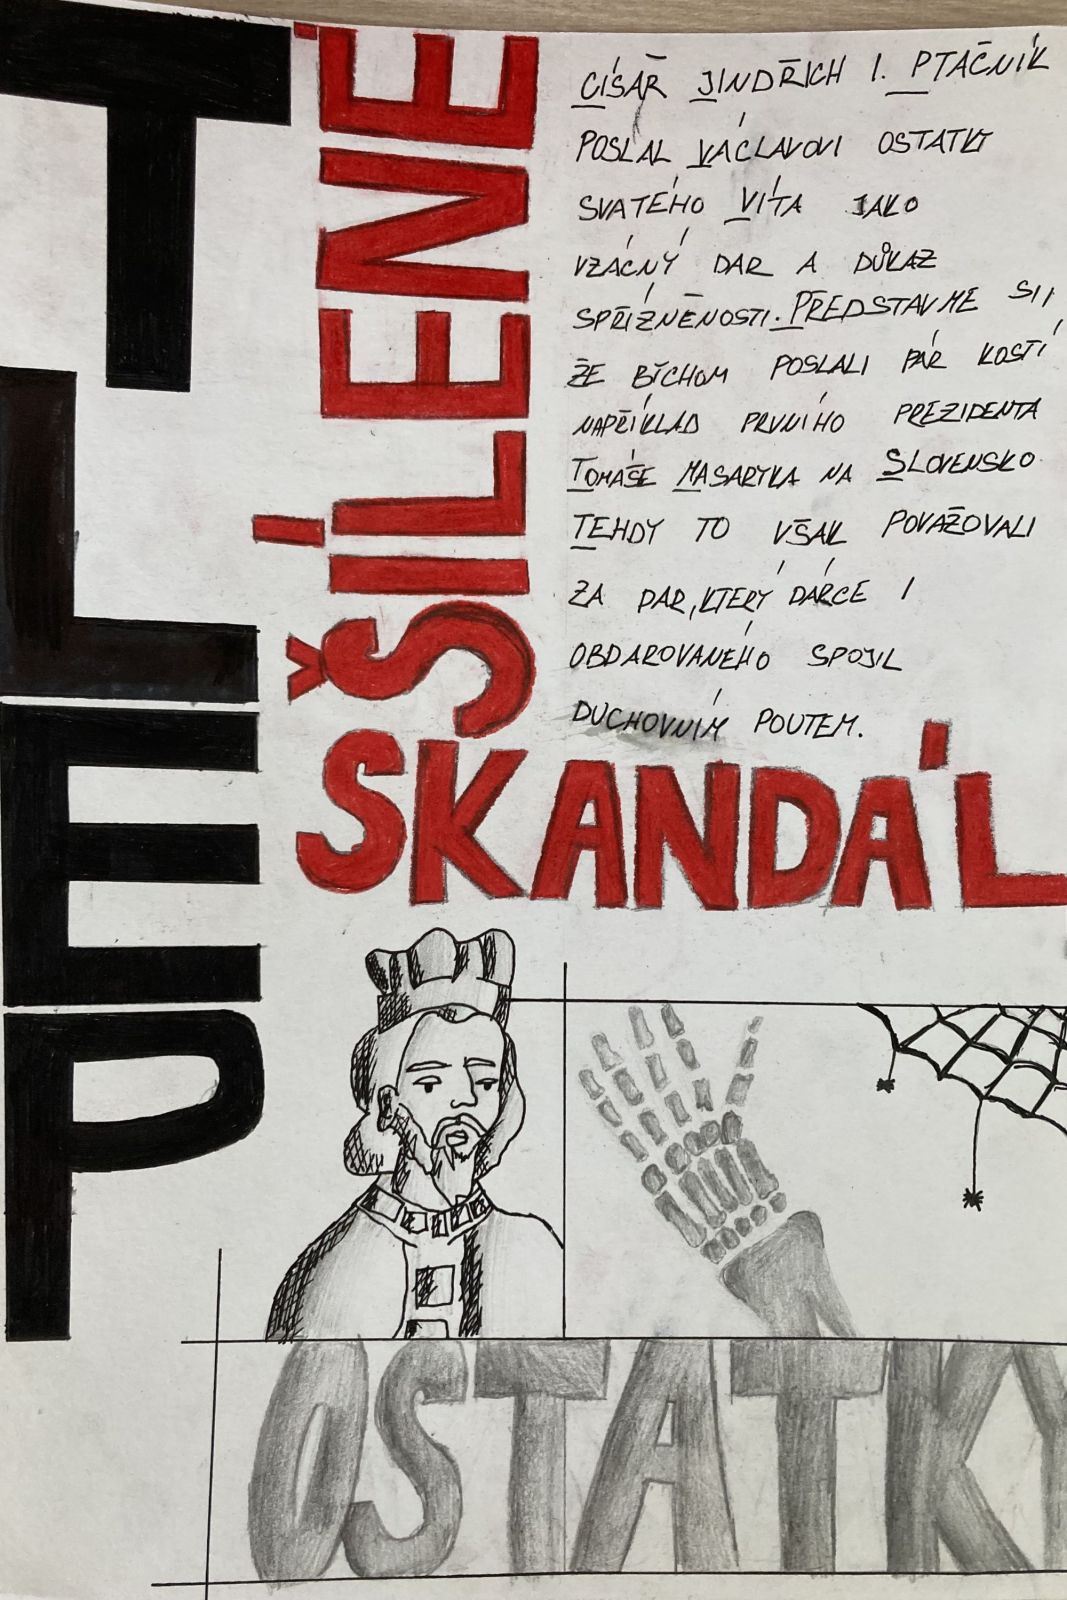 TLEP
ŠÍLENÉ
CÍSAŘ JINDŘICH I. PTÁČNÍK
POSLAL VÁCLAVOVI OSTATKY
SVATÉHO VÍTA JAKO
VZÁCNÝ DAR A DŮKAZ
SPŘÍZNĚNOSTI. PŘEDSTAVME SI,
ŽE BYCHOM POSLALI PÁR KOSTÍ
NAPŘÍKLAD PRVNÍHO PREZIDENTA
TOMÁŠE MASARYKA NA SLOVENSKO.
TEHDY TO VŠAK POVAŽOVALI
ZA DAR, KTERÝ DÁRCE I
OBDAROVANÉHO SPOJIL
DUCHOVNÍM POUTEM.
SKANDÁL
OSTATKY